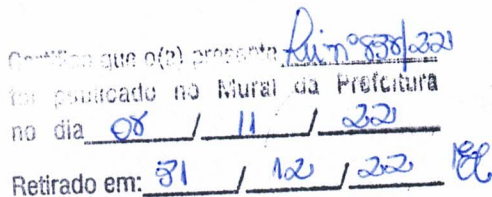 Certifico que o(a) presente Lei nº 838/22
foi publicado no Mural da Prefeitura
no dia 08 / 11 / 22
Retirado em: 31 / 12 / 22